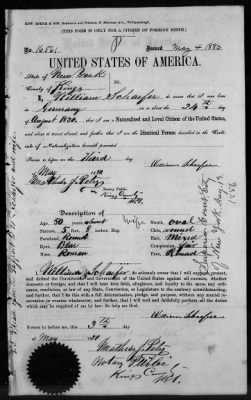 [THIS FORM IS ONLY FOR A CITIZEN OF FOREIGN BIRTH]
No. 16561 Issued May 4 1880
UNITED STATES OF AMERICA.
State of New York
County of Kings ss.
I, William Schaefer do swear that I was born
in Germany on or about the 24th day of
August 1830. that I am a Naturalized and Loyal Citizen of the United States,
and about to travel abroad; and further, that I am the Identical Person described in the
of Naturalization herewith presented.
Sworn to before me this Third
day of May 1880
William Schaefer
Notary Public
Kings County
N.Y.
Description of
Age: 50 years
Stature: 5 feet 8 inches, Eng.
Forehead: Round
Eyes: Blue
Nose: Roman
Mouth: oval
Chin: round
Hair: Mixed
Complexion: Fair
Face: Round
Wife
I, William Schaefer, do solemnly swear that I will support, protect,
and defend the Constitution and Government of the United States against all enemies, whether domestic
or foreign; and that I will bear true faith, allegiance, and loyalty to the same, any
ordinance, resolution or law of any State, Convention, or Legislature to the contrary notwithstanding;
and further, that I do this with a full determination, pledge, and purpose, without any mental
reservation or evasion whatsoever; and further, that I will well and faithfully perform all the duties
which may be required of me by law: So help me God.
William Schaefer
Sworn to before me, this 3rd
day of May 1880
Notary Public
Kings County
N.Y.
New York